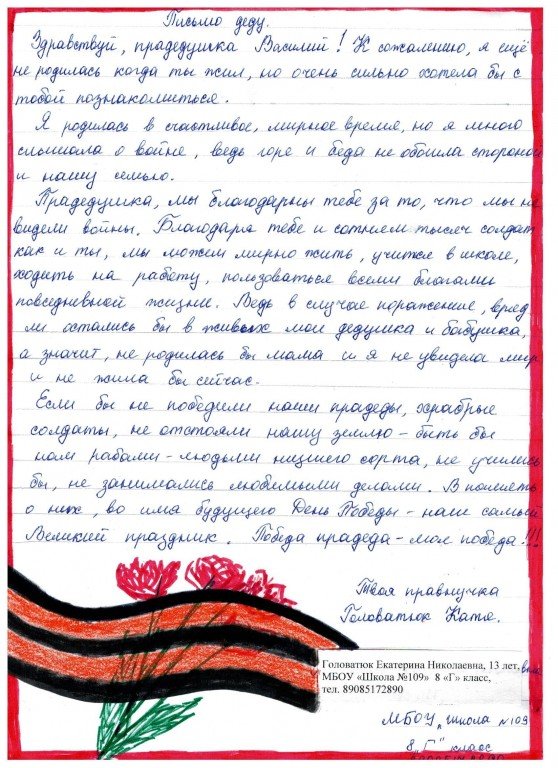 Письмо деду.
Здравствуй, прадедушка Василий! К сожалению, я ещё
не родилась когда ты жил, но очень сильно хотела бы с
тобой познакомиться.
Я родилась в счастливое, мирное время, но я много
слышала о войне, ведь горе и беда не обошла стороной
и нашу семью.
Прадедушка, мы благодарны тебе за то, что мы не
видели войны. Благодаря тебе и сотням тысяч солдат
как и ты, мы можем мирно жить, учится в школе,
ходить на работу, пользоваться всеми благами
повседневной жизни. Ведь в случае поражение, вряд
ли остались бы в живых мои дедушка и бабушка,
а значит, не родилась бы мама и я не увидела мир
и не жила бы сейчас.
Если бы не победили наши прадеды, храбрые
солдаты, не отстояли нашу землю - быть бы
нам рабами - людьми низшего сорта, не учились
бы, не занимались любимыми делами. В память
о них, во имя будущего День Победы - наш самый
Великий праздник. Победа прадеда - моя победа!!!
Твоя правнучка
Головатюк Катя.
Головатюк Екатерина Николаевна, 13 лет.
МБОУ «Школа №109» 8 «Г» класс,
тел. 89085172890
МБОУ „школа №109
8 „Г" класс